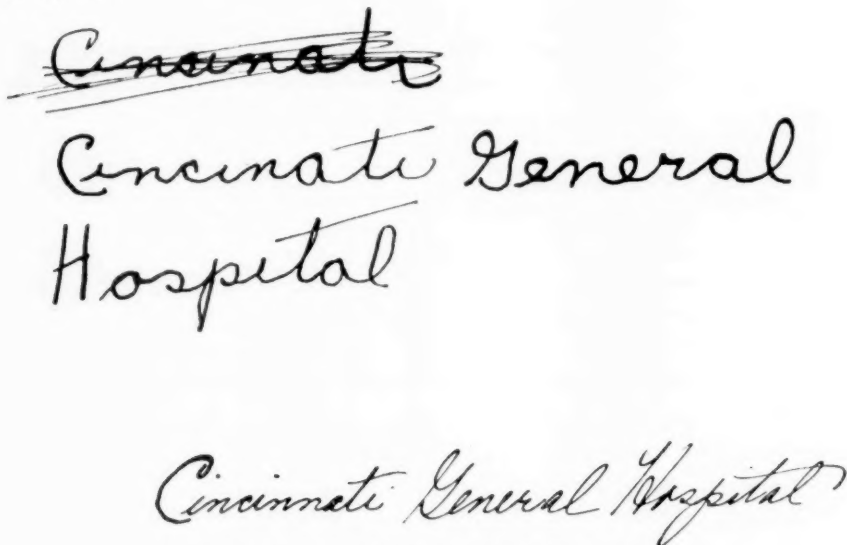 Cincinati
Cincinati General
Hospital
Cincinnati General Hospital